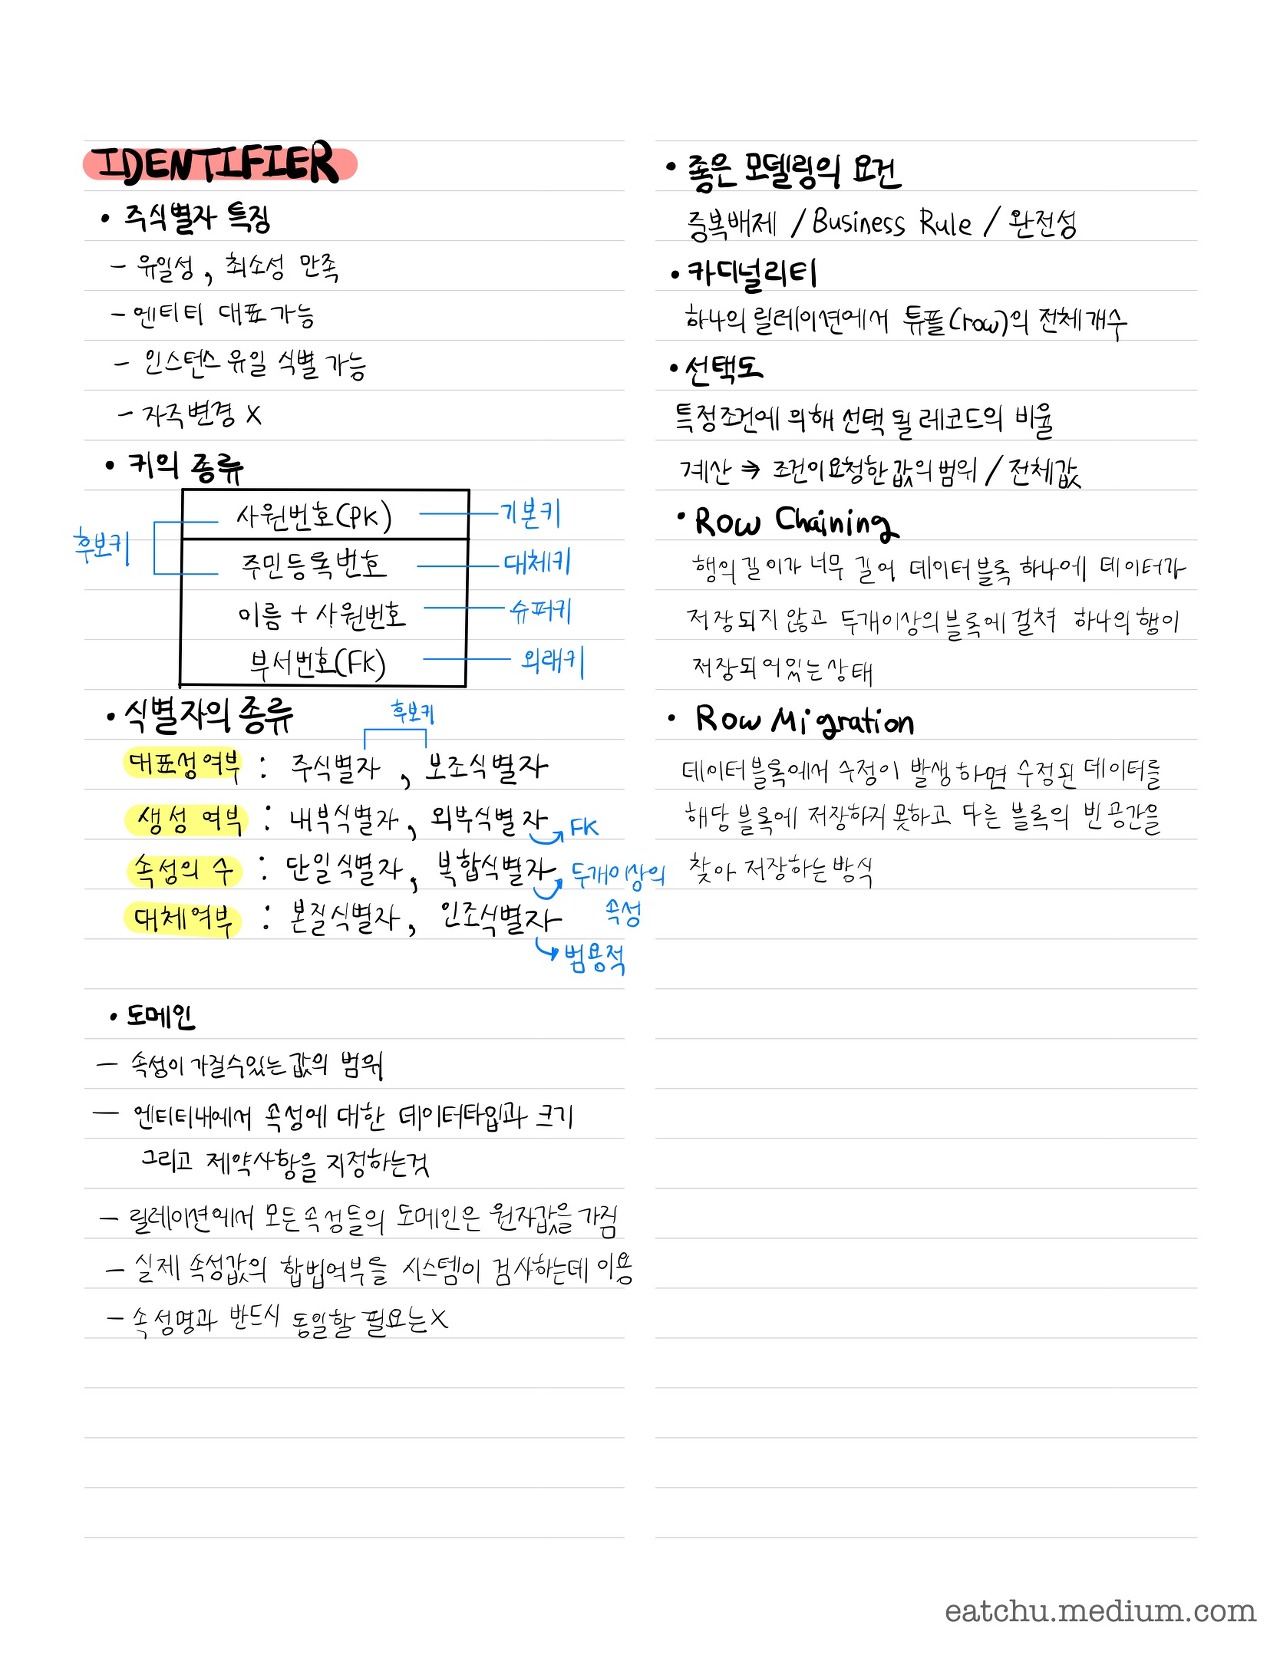 IDENTIFIER
• 주식별자 특징
- 유일성, 최소성 만족
- 엔티티 대표가능
- 인스턴스 유일 식별 가능
- 자주변경 X
• 키의 종류
후보키
사원번호(PK) 기본키
주민등록번호 대체키
이름 + 사원번호 슈퍼키
부서번호(FK) 외래키
• 식별자의 종류
후보키
대표성여부 : 주식별자, 보조식별자
생성 여부 : 내부식별자, 외부식별자
FK
속성의 수 : 단일식별자, 복합식별자
두개이상의
속성
대체여부 : 본질식별자, 인조식별자
범용적
• 도메인
- 속성이 가질수있는 값의 범위
- 엔티티내에서 속성에 대한 데이터타입과 크기
그리고 제약사항을 지정하는것
- 릴레이션에서 모든속성들의 도메인은 원자값을 가짐
- 실제 속성값의 합법여부를 시스템이 검사하는데 이용
- 속성명과 반드시 동일할 필요는X
• 좋은 모델링의 요건
중복배제 / Business Rule / 완전성
• 카디널리티
하나의 릴레이션에서 튜플(row)의 전체개수
• 선택도
특정조건에 의해 선택 될 레코드의 비율
계산 ⇒ 조건이요청한값의 범위 / 전체값
• Row Chaining
행의 길이가 너무 길어 데이터 블록 하나에 데이터가
저장되지 않고 두개이상의 블록에 걸쳐 하나의 행이
저장되어있는 상태
• Row Migration
데이터블록에서 수정이 발생하면 수정된 데이터를
해당 블록에 저장하지 못하고 다른 블록의 빈 공간을
찾아 저장하는 방식
eatchu.medium.com